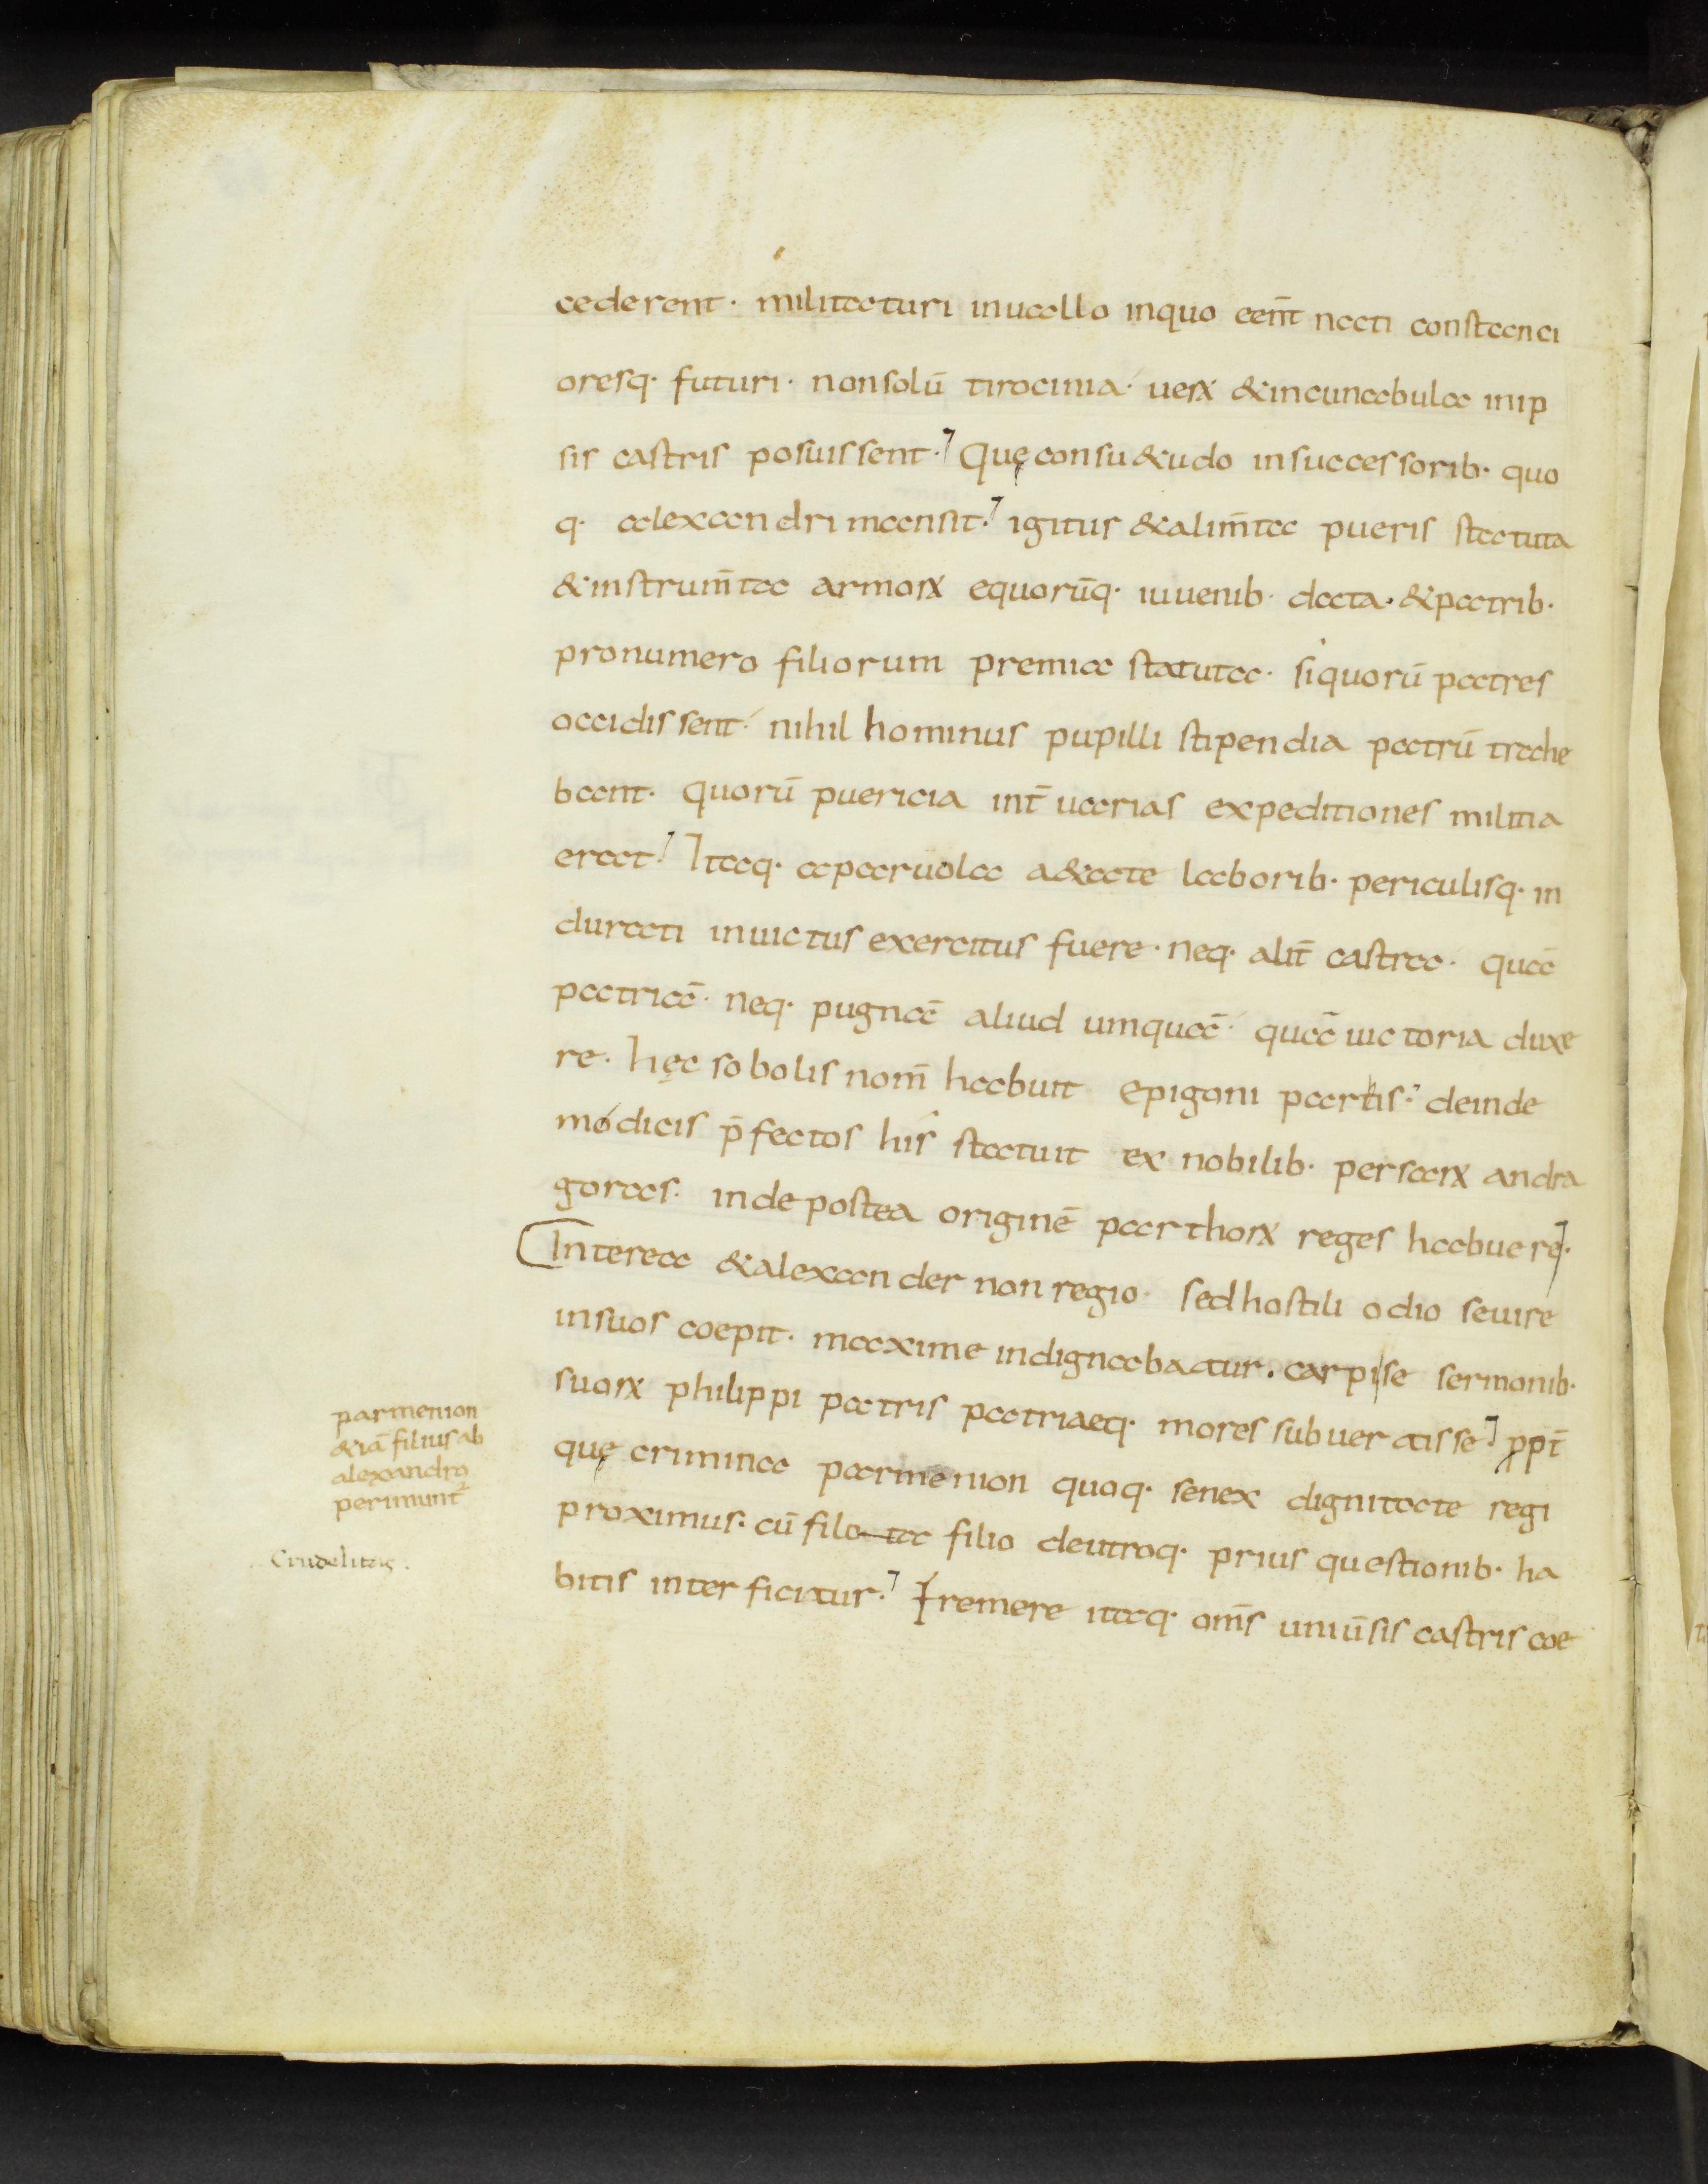 cederent · militaturi inuallo inquo eēnt nati constanci
oresq· futuri · nonsolū tirocinia · uerꝝ &incunabula inip
sis castris posuissent · Quę consu&udo insuccessorib· quo
q· alexandri mansit · igitur &alim̄ta pueris statuta
&instrum̄ta armorꝝ equorūq· iuuenib· data · &patrib·
pronumero filiorum premia statuta · siquorū patres
occidissent · nihil hominus pupilli stipendia patrū trahe
bant · quorū puericia int̄ uarias expeditiones militia
erat · Itaq· aparuola a&ate laborib· periculisq· in
durati inuictus exercitus fuere · neq· alit̄ castra · quā
patriā · neq· pugnā aliud umquā · quā uictoria duxe
re · hęc sobolis nom̄ habuit epigoni partis · deinde
modicis p̄fectos his statuit ex nobilib· persarꝝ andra
goras · inde postea originē parthorꝝ reges habuere ·
Interea &alexander non regio · sed hostili odio seuire
insuos coepit · maxime indignabatur · carpise sermonib·
suorꝝ philippi patris patriaeq· mores subuertisse · ꝓpt̄
que crimina parmenion quoq· senex dignitate regi
proximus · cū filo ta filio deutroq· prius questionib· ha
bitis interficitur · Fremere itaq· om̄s uniūsis castris coe
parmenion
&iā filius ab
alexandro
perimunt᷑
Crudelitas ·